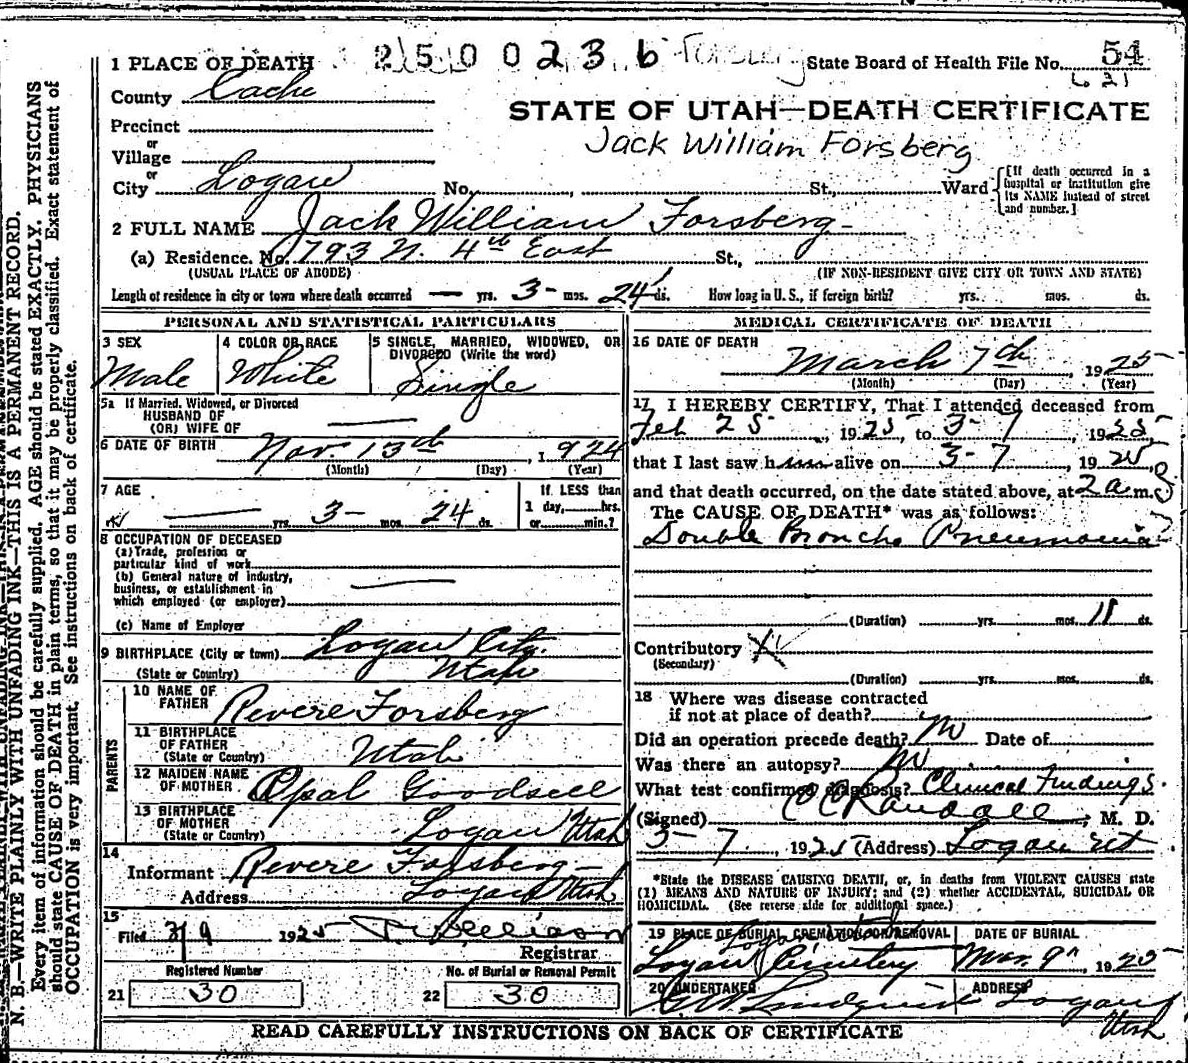 1 PLACE OF DEATH 2500236 Forsberg State Board of Health File No. 54
County Cache 621
STATE OF UTAH—DEATH CERTIFICATE
Precinct
or
Jack William Forsberg
Village
or
City Logan No. , St., Ward [If death occurred in a hospital or institution give its NAME instead of street and number.]
2 FULL NAME Jack William Forsberg
(a) Residence. No. 793 N. 4th East St.,
(USUAL PLACE OF ABODE) (IF NON-RESIDENT GIVE CITY OR TOWN AND STATE)
Length of residence in city or town where death occurred — yrs. 3 mos. 24 ds. How long in U. S., if foreign birth? yrs. mos. ds.
PERSONAL AND STATISTICAL PARTICULARS
3 SEX
Male
4 COLOR OR RACE
White
5 SINGLE, MARRIED, WIDOWED, OR
DIVORCED (Write the word)
Single
5a If Married, Widowed, or Divorced
HUSBAND OF
(OR) WIFE OF —
6 DATE OF BIRTH Nov. 13th, 1924
(Month) (Day) (Year)
7 AGE
— yrs. 3- mos. 24 ds.
If LESS than
1 day, hrs.
or min.?
8 OCCUPATION OF DECEASED
(a) Trade, profession or
particular kind of work
(b) General nature of industry,
business, or establishment in
which employed (or employer)
(c) Name of Employer
9 BIRTHPLACE (City or town) Logan City.
(State or Country) Utah
PARENTS
10 NAME OF
FATHER Revere Forsberg
11 BIRTHPLACE
OF FATHER
(State or Country) Utah
12 MAIDEN NAME
OF MOTHER Opal Goodsell
13 BIRTHPLACE
OF MOTHER
(State or Country) Logan Utah
14
Informant Revere Forsberg
Address Logan Utah
15
Filed 3/9 1925
Registrar
Registered Number
21 30
No. of Burial or Removal Permit
22 30
MEDICAL CERTIFICATE OF DEATH
16 DATE OF DEATH
March 7th, 1925
(Month) (Day) (Year)
17 I HEREBY CERTIFY, That I attended deceased from
Feb 25, 1925, to 3-7, 1925,
that I last saw him alive on 3-7, 1925,
and that death occurred, on the date stated above, at 2 a m.
The CAUSE OF DEATH* was as follows:
Double Broncho Pneumonia
(Duration) yrs. mos. 11 ds.
Contributory
(Secondary)
(Duration) yrs. mos. ds.
18 Where was disease contracted
if not at place of death?
Did an operation precede death? no Date of
Was there an autopsy? no
What test confirmed diagnosis? Clinical Findings.
(Signed) C C Randall, M. D.
3-7, 1925 (Address) Logan Ut
*State the DISEASE CAUSING DEATH, or, in deaths from VIOLENT CAUSES state
(1) MEANS AND NATURE OF INJURY; and (2) whether ACCIDENTAL, SUICIDAL OR
HOMICIDAL. (See reverse side for additional space.)
19 PLACE OF BURIAL, CREMATION OR REMOVAL
Logan Utah
Logan Cemetery
DATE OF BURIAL
Mar. 9th, 1925
20 UNDERTAKER
Lindquist
ADDRESS
Logan
Utah
READ CAREFULLY INSTRUCTIONS ON BACK OF CERTIFICATE
N. B.—WRITE PLAINLY WITH UNFADING INK—THIS IS A PERMANENT RECORD.
Every item of information should be carefully supplied. AGE should be stated EXACTLY. PHYSICIANS
should state CAUSE OF DEATH in plain terms, so that it may be properly classified. Exact statement of
OCCUPATION is very important. See instructions on back of certificate.